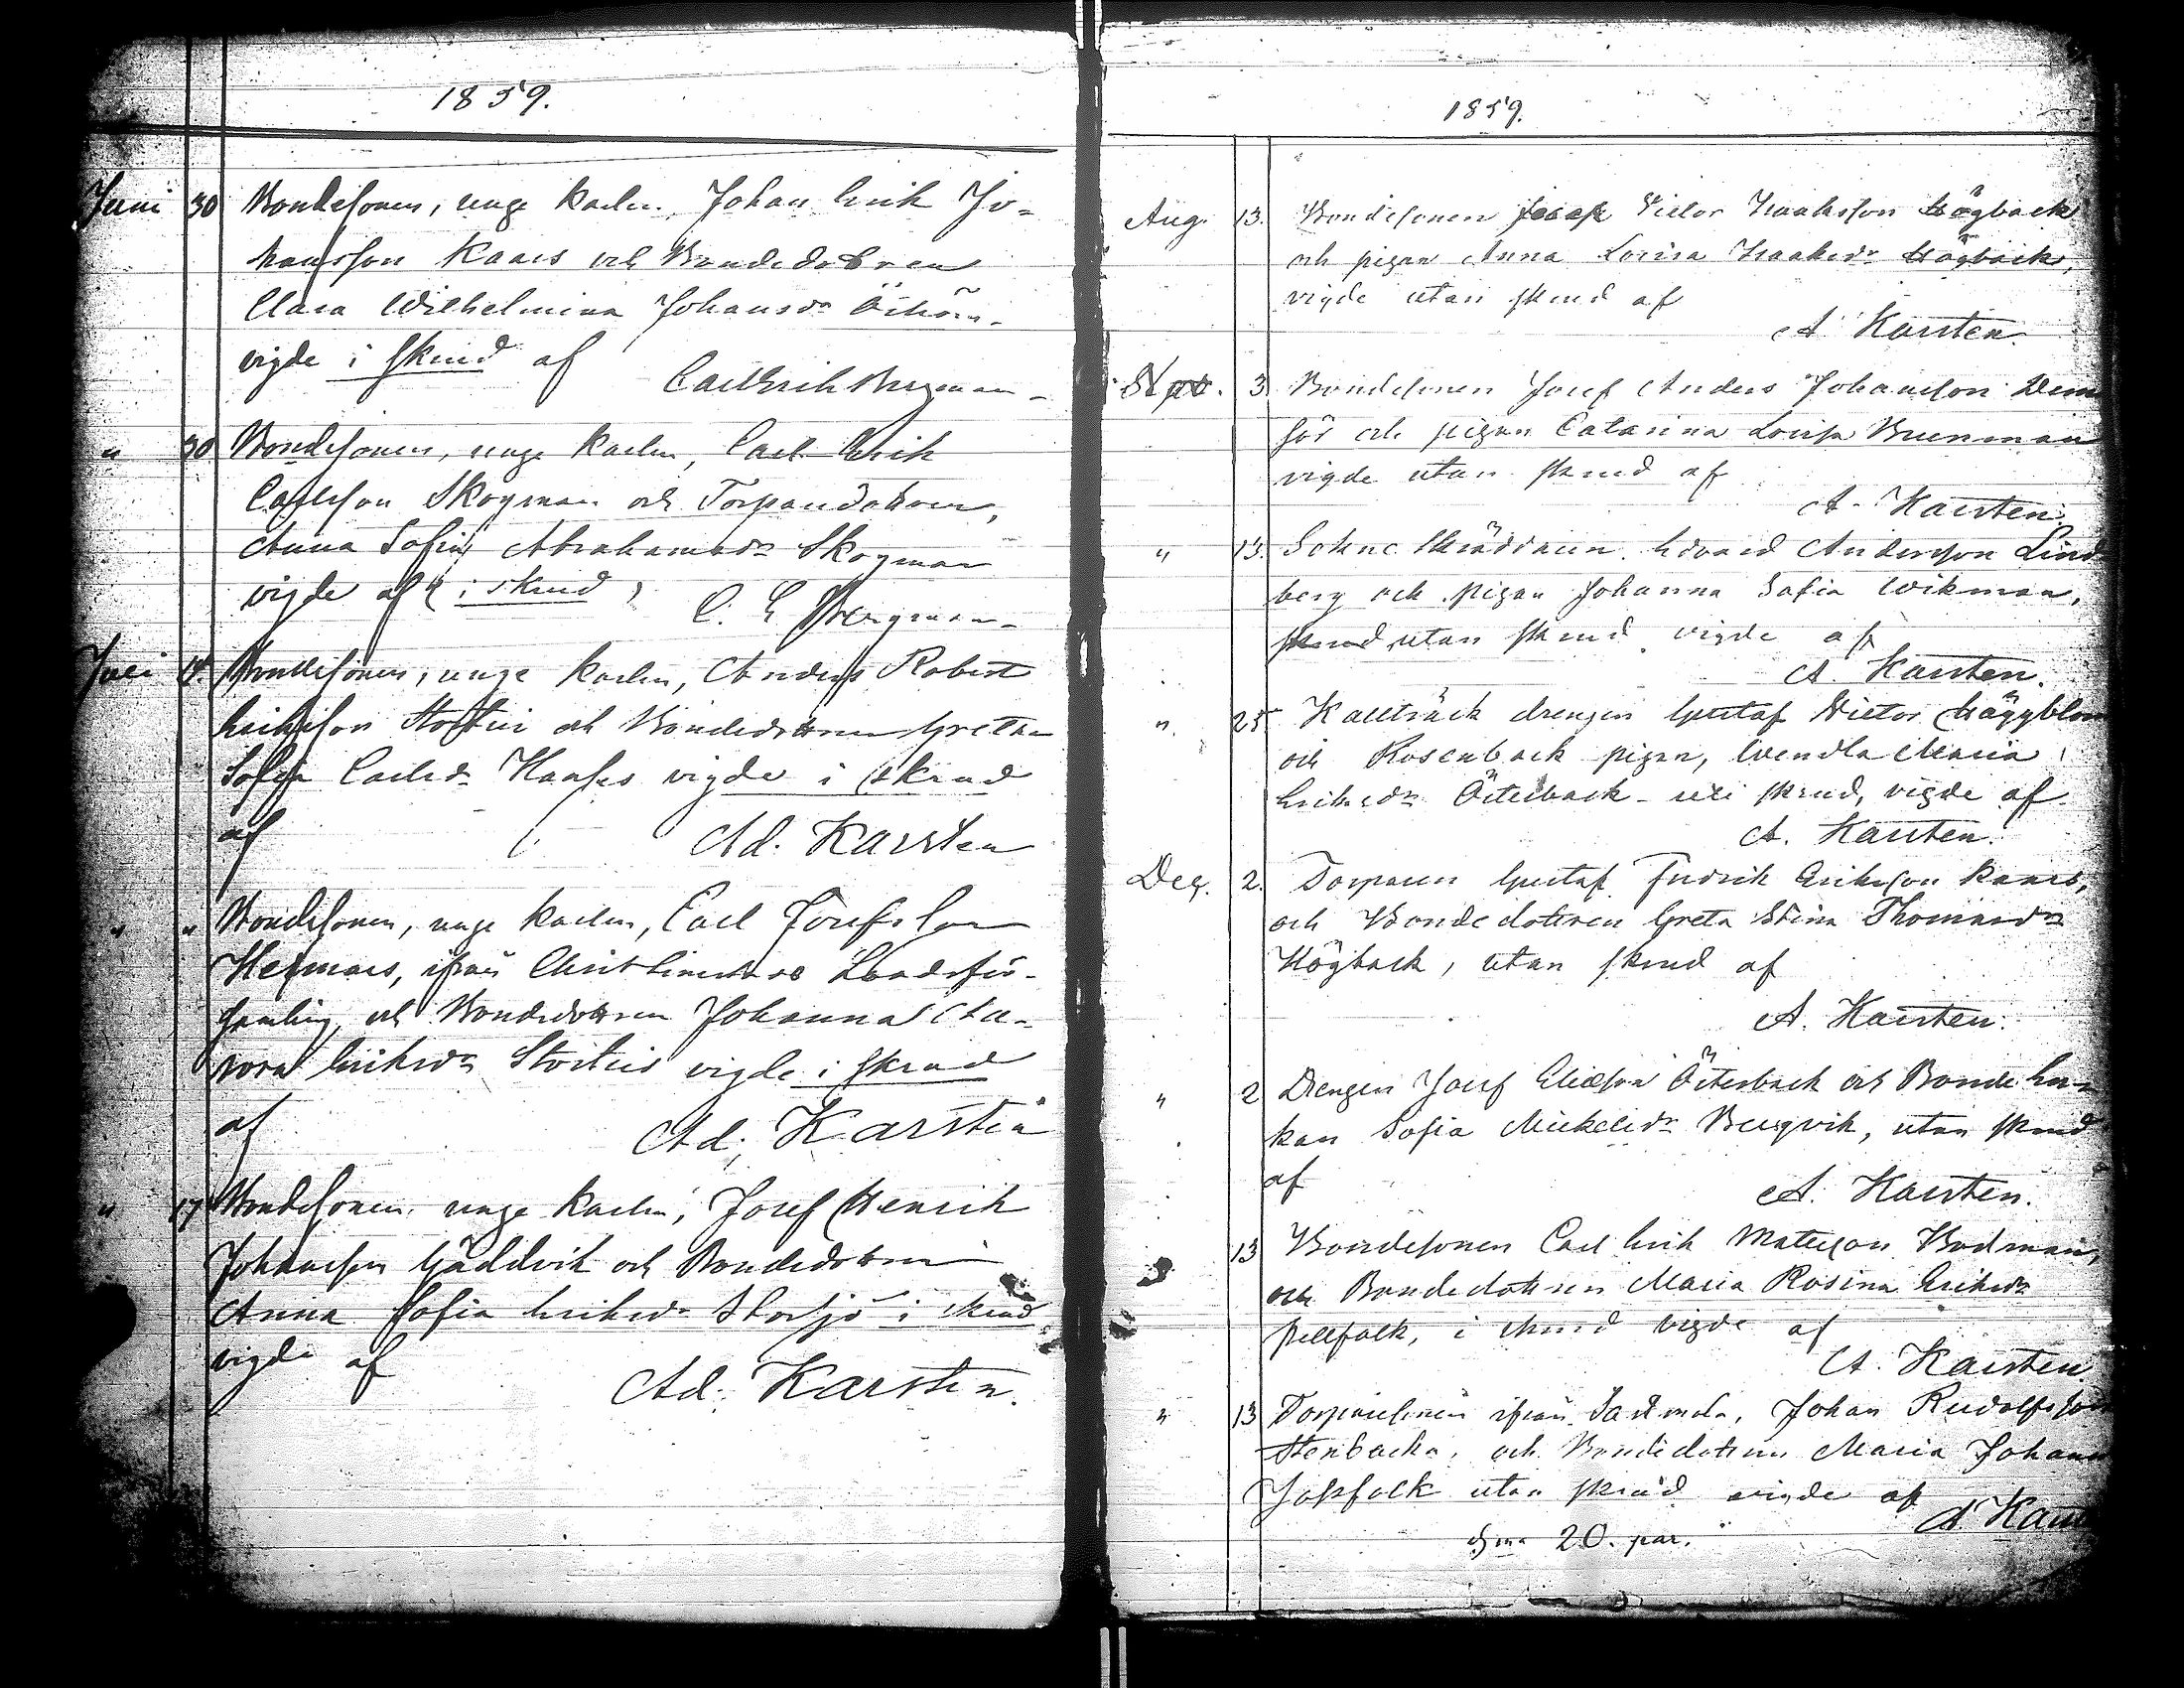 1859.
Juni 30 Bondesonen, unge karlen, Johan Erik Jo-
hansson Kaars och Bondedottren
Clara Wilhelmina Johansdr
vigde i skrud af Carl Erik Bergman
" 30 Bondesonen, unge karlen, Carl Erik
Carlsson Skogman och Torparedottren,
Anna Sofia Abrahamsdr Skogman
vigde af (i skrud) C. E. Bergman
Juli Bondesonen, unge karlen, Anders Robert
Eriksson och Bondedottren Greta
Sofia Carlsdr vigde i skrud
af Ad. Karsten
" " Bondesonen, unge karlen, Carl Josefsson
ifrån Christinestads Landsför-
samling, och Bondedottren Johanna Au-
rora Eriksdr vigde i skrud
af Ad. Karsten
" 17 Bondesonen, unge karlen, Josef Henrik
Johansson Gäddvik och Bondedottren
Anna Sofia Eriksdr i skrud
vigde af Ad. Karsten.
1859.
Aug. 13. Bondesonen Victor Isaaksson Högback
och pigan Anna Lovisa Isaaksdr Högback,
vigde utan skrud af
A. Karsten.
Sept. 3 Bondesonen Josef Anders Johansson
och pigan Catarina Lovisa
vigde utan skrud af
A. Karsten.
" 13. Sockne Skräddaren Edvard Andersson Lind
berg och pigan Johanna Sofia Wikman,
skrud utan skrud vigde af
A. Karsten.
" 25 drengen Gustaf Victor Häggblom
och Rosenback pigan, Wendla Maria
Eriksdr Österback - skrud, vigde af
A. Karsten.
Dec. 2. Torparen Gustaf Fredrik Eriksson Kaars,
och Bondedottren Greta Stina Thomasdr
Högback, utan skrud af
A. Karsten.
" 2 Drengen Josef Eliasson Österback och Bonde
Sofia Mickelsdr Bergvik, utan skrud
af A. Karsten.
13 Bondesonen Carl Erik Matsson Bodman,
och Bondedottren Maria Rosina Eriksdr
Pellfolk, i skrud vigde af
A. Karsten.
" 13 ifrån Sastmola, Johan Rudolfsson
Stenbacka, och Bondedottren Maria Johans
Jossfolk utan skrud vigde af
A Karst
20. par.